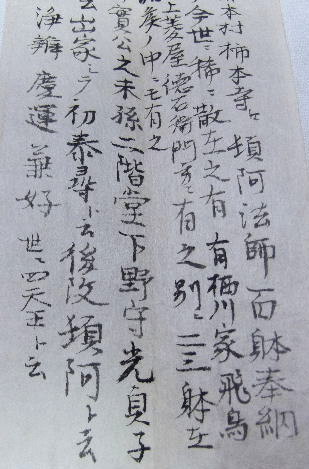 本村柿本寺ニ頓阿法師百躰奉納
今世ニ稀ニ散在之有 有栖川家飛鳥
上菱屋徳右衛門方ニ有之別ニ二三躰在
矣ノ中ニモ有之
實公之末孫二階堂下野守光貞子
出家シテ初泰尋ト云後改頓阿ト云
浄辨慶運兼好 世ニ四天王ト云